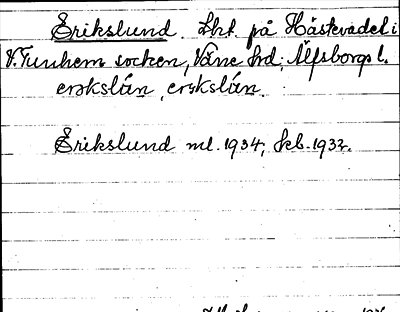 Erikslund. Lht. på Håstevadet i
V. Tunhem socken, Väne hd, Älfsborgs l.
erskslán, erskslán.
Erikslund ml. 1934, skb. 1932.